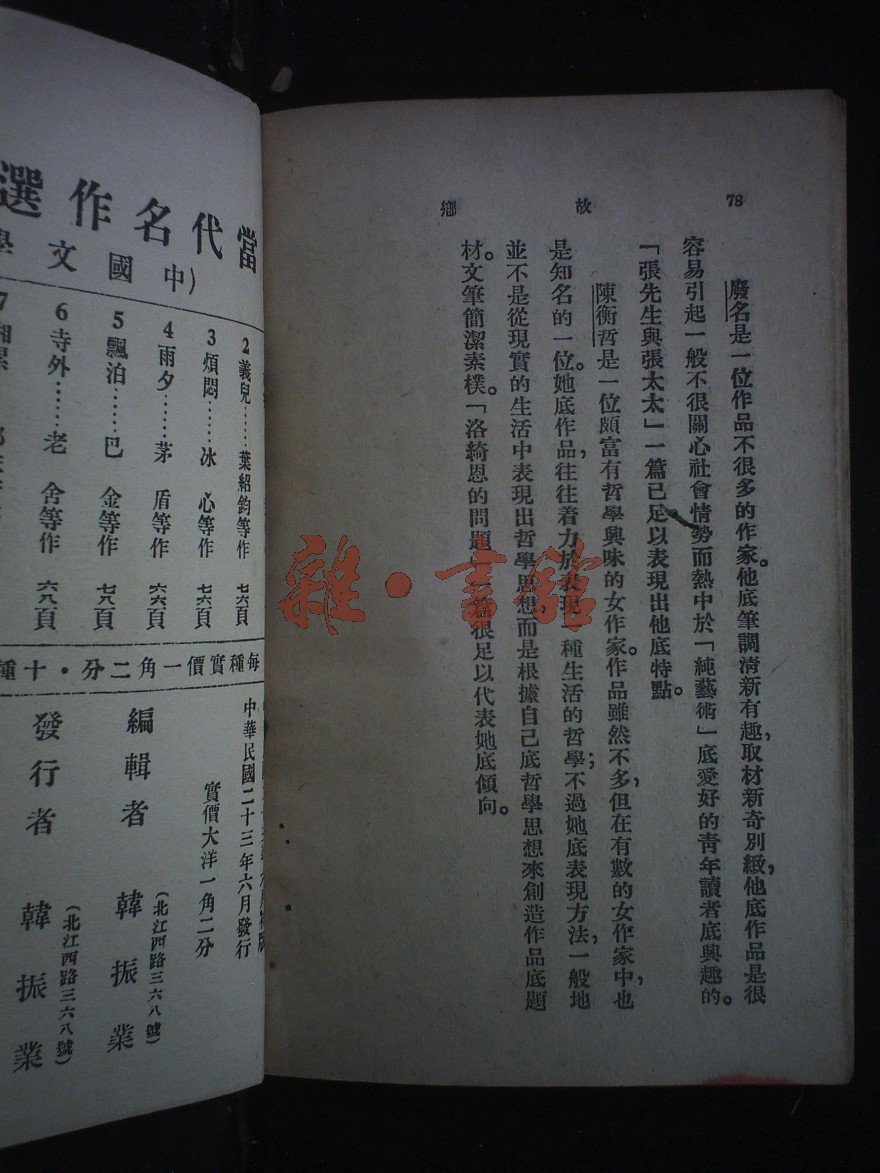 78
故鄉
廢名是一位作品不很多的作家。他底筆調清新有趣，取材新奇別緻，他底作品是很
容易引起一般不很關心社會情勢而熱中於「純藝術」底愛好的青年讀者底興趣的。
「張先生與張太太」一篇已足以表現出他底特點。
陳衡哲是一位頗富有哲學興味的女作家。作品雖然不多，但在有數的女作家中，也
是知名的一位。她底作品，往往着力於表現一種生活的哲學；不過她底表現方法，一般地
並不是從現實的生活中表現出哲學思想，而是根據自己底哲學思想來創造作品底題
材。文筆簡潔素樸。「洛綺恩的問題」一篇很足以代表她底傾向。
當代名作選
（中國文學
2 義兒……葉紹鈞等作 七六頁
3 煩悶……冰心等作 七六頁
4 雨夕……茅盾等作 六六頁
5 飄泊……巴金等作 七八頁
6 寺外……老舍等作 六八頁
7
每種實價一角二分·十種
中華民國二十三年六月發行
實價大洋一角二分
編輯者 韓振業
（北江西路三六八號）
發行者 韓振業
（北江西路三六八號）
雜·書館